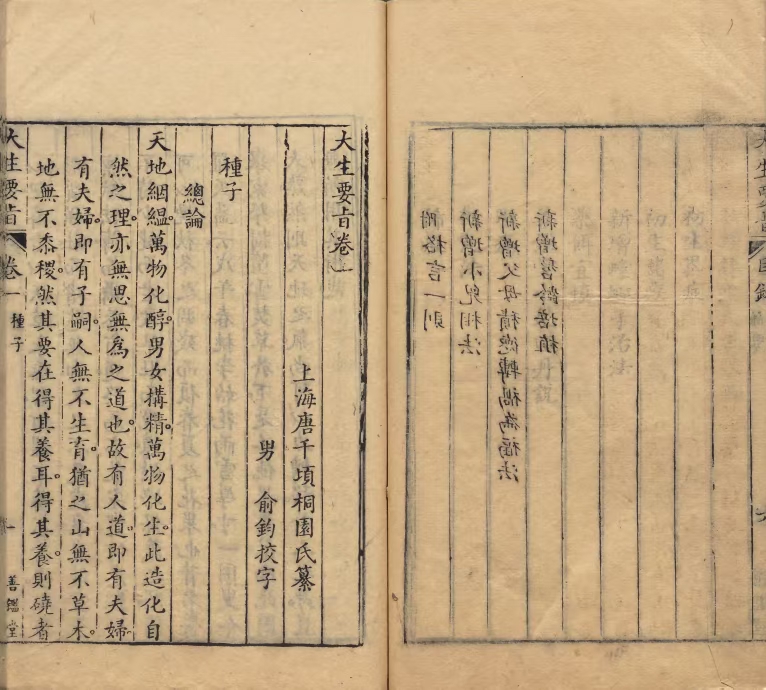 大生要旨 目錄
新增髫齡培植
新增父母積德轉禍為福法
新增小兒相法
附格言一則
大生要旨卷一
上海唐千頃桐園氏纂
男 俞鈞挍字
種子
總論
天地絪緼萬物化醇男女搆精。萬物化生。此造化自
然之理。亦無思無爲之道也。故有人道。即有夫婦。
有夫婦。即有子嗣。人無不生育。猶之山無不草木。
地無不黍稷。然其要在得其養耳。得其養。則磽者
大生要旨 卷一 種子 一 善鑑堂